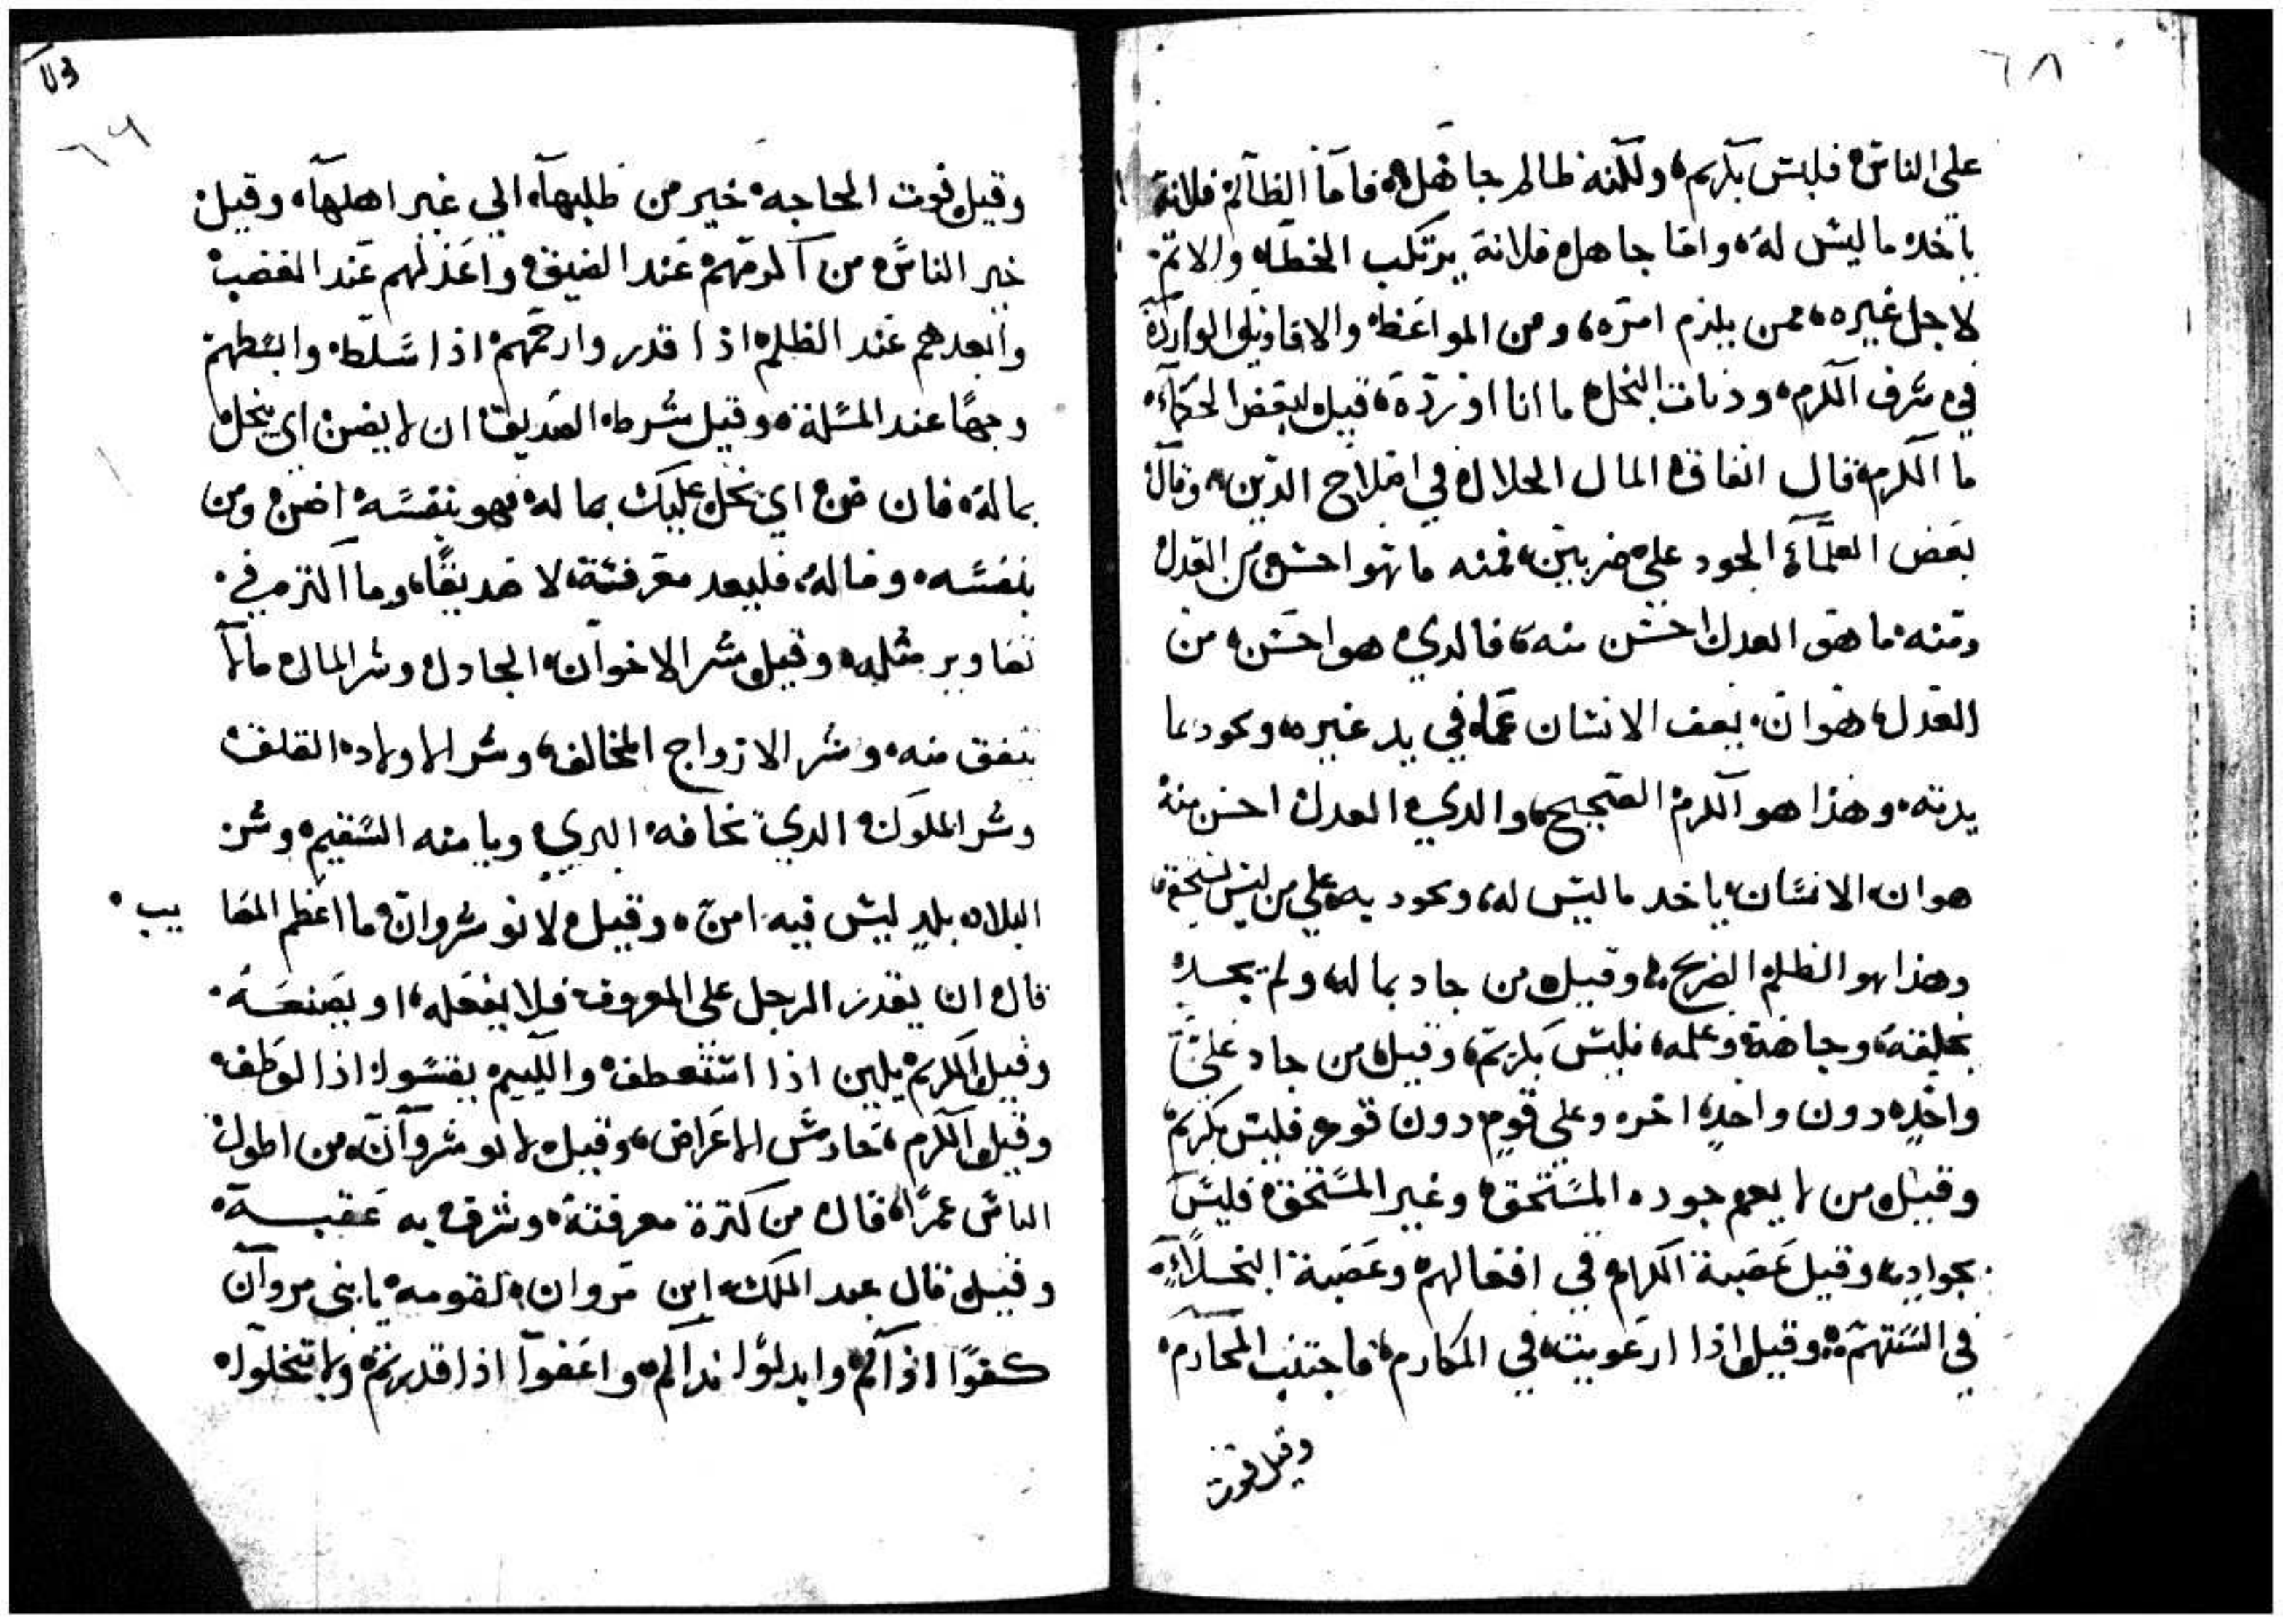 ٦٨
على الناس فليس بكريم، ولكنه ظالم جاهل، فاما الظالم فلانة
ياخد ما ليس له، واما جاهل فلانة يرتكب الخطاه والاتم
لاجل غيره، ممن يلزم امره، ومن المواعظ والاقاويل الوارده
في شرف الكرم، وذمات البخل ما انا اورده، قيل لبعض الحكماء
ما الكرم قال انفاق المال الحلال في اصلاح الدين، وقال
بعض العلماء الجود على ضربين، فمنه ما هو احسن من العدل
ومنه ما هو العدل احسن منه، فالدي هو احسن من
العدل، هو ان يعف الانسان عما في يد غيره، ويجود بما
يدته، وهذا هو الكرم الصحيح، والدي العدل احسن منه
هو ان الانسان ياخد ما ليس له، ويجود به على من ليس يستحقه
وهذا هو الظلم الصريح، وقيل من جاد بماله ولم يجد
بخليقته وجاهه وعلمه، فليس بكريم، وقيل من جاد على
واحد دون واحد اخر، وعلى قوم دون قوم فليس بكريم
وقيل من لا يعم جوده المستحق وغير المستحق فليس
بجواد، وقيل عصبة الكرام في افعالهم وعصبة البخلاء
في السنتهم، وقيل اذا ارعويت في المكارم، فاجتنب المحارم
وقيل فوت
٦٩
وقيل فوت الحاجه خير من طلبها الي غير اهلها، وقيل
خير الناس من اكرمهم عند الضيق واعذلهم عند الغضب
وابعدهم عند الظلم اذا قدر وارحمهم اذا سلط وابسطهم
وجها عند المسلة، وقيل شرط الصديق ان لا يضن اي يبخل
بماله، فان ضن اي بخل عليك بماله فهو بنفسه اضن ومن
بنفسه وماله، فليعد معرفته، لا صديقا، وما اكتر في
تصاوير مثله، وقيل شر الاخوان، الجادل وشر المال ما لا
ينفق منه، وشر الازواج المخالفه، وشر الاولاد القلف
وشر الملوك الدي تخافه البري ويامنه السقيم وشر
البلاد بلد ليس فيه امن، وقيل لانوشروان ما اعظم المصايب
قال ان يقدر الرجل على المعروف فلا يفعله، او يصنعه
وقيل الكريم يلين اذا استعطف والليم يقسوا اذا لوطف
وقيل الكرم، حارس الاعراض، وقيل لانوشروان، من اطول
الناس عمرا، قال من كترة معرفته، وشرف به عقبه
وقيل قال عبد الملك ابن مروان لقومه يا بني مروان
كفوا اذاكم وابدلوا نداكم، واعفوا اذا قدرتم ولا تبخلوا